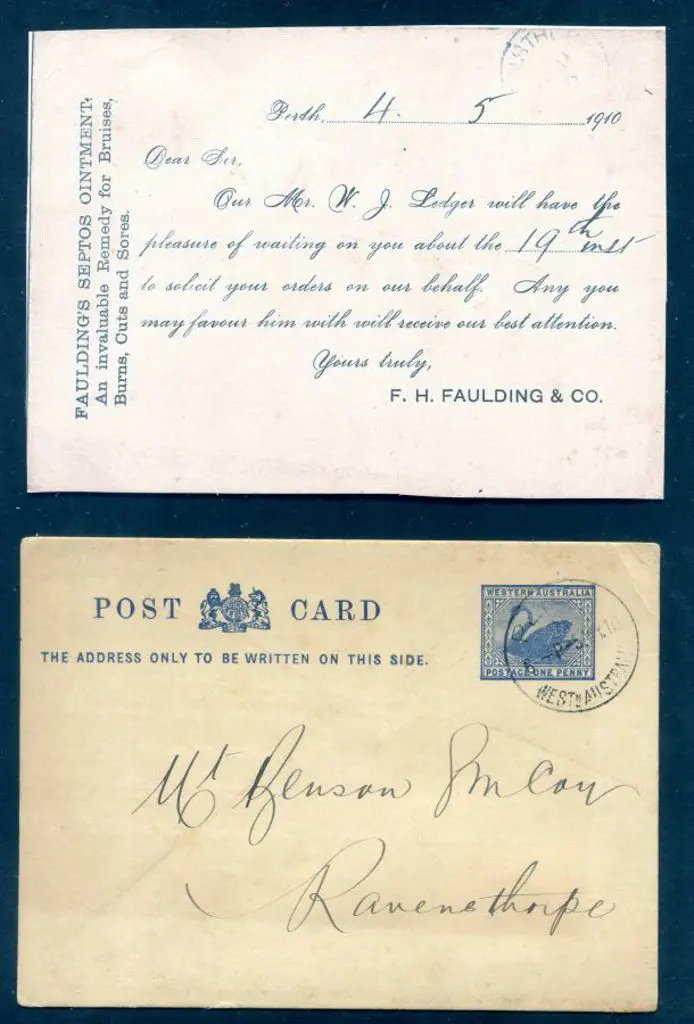 FAULDING'S SEPTOS OINTMENT:
An invaluable Remedy for Bruises,
Burns, Cuts and Sores.
Perth, 4. 5 1910
Dear Sir,
Our Mr. W. J. Ledger will have the
pleasure of waiting on you about the 19th inst
to solicit your orders on our behalf. Any you
may favour him with will receive our best attention.
Yours truly,
F. H. FAULDING & CO.
POST CARD
THE ADDRESS ONLY TO BE WRITTEN ON THIS SIDE.
WESTERN AUSTRALIA
POSTAGE ONE PENNY
Mt Benson GM Coy
Ravensthorpe